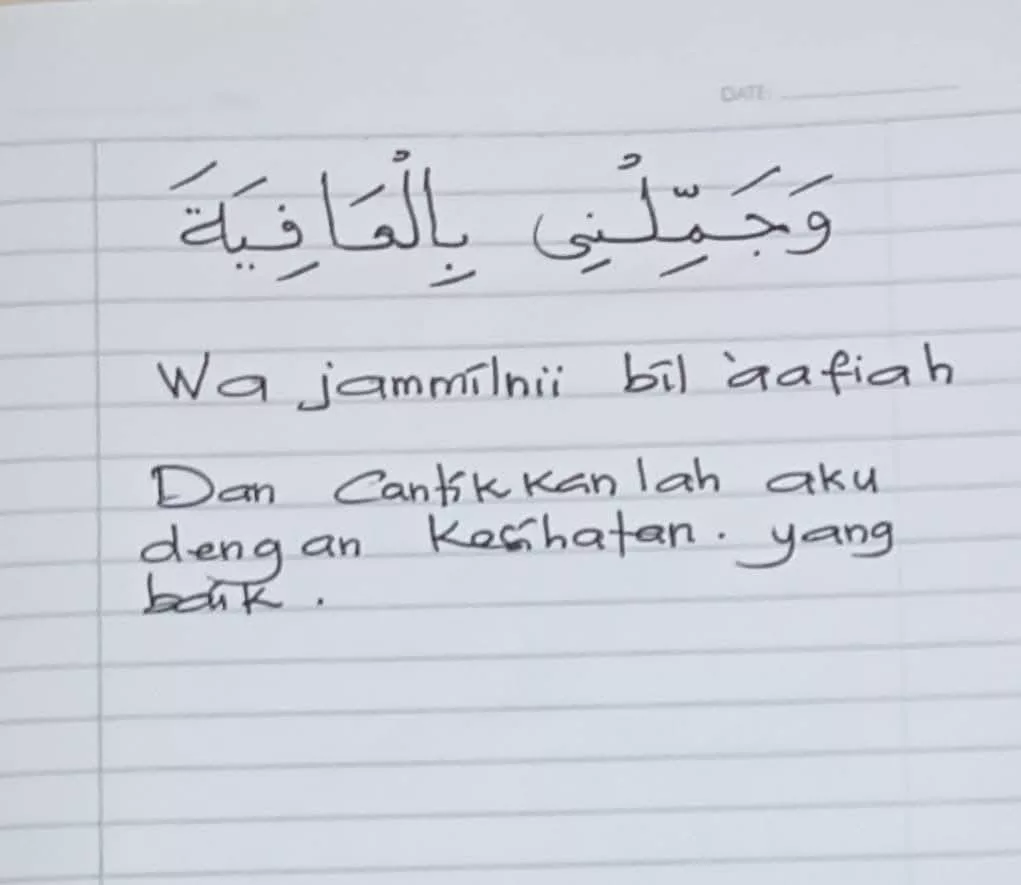 DATE:
وَجَمِّلْنِي بِالْعَافِيَةَ
Wa jammilnii bil 'aafiah
Dan Cantikkanlah aku
dengan kesihatan. yang
baik.